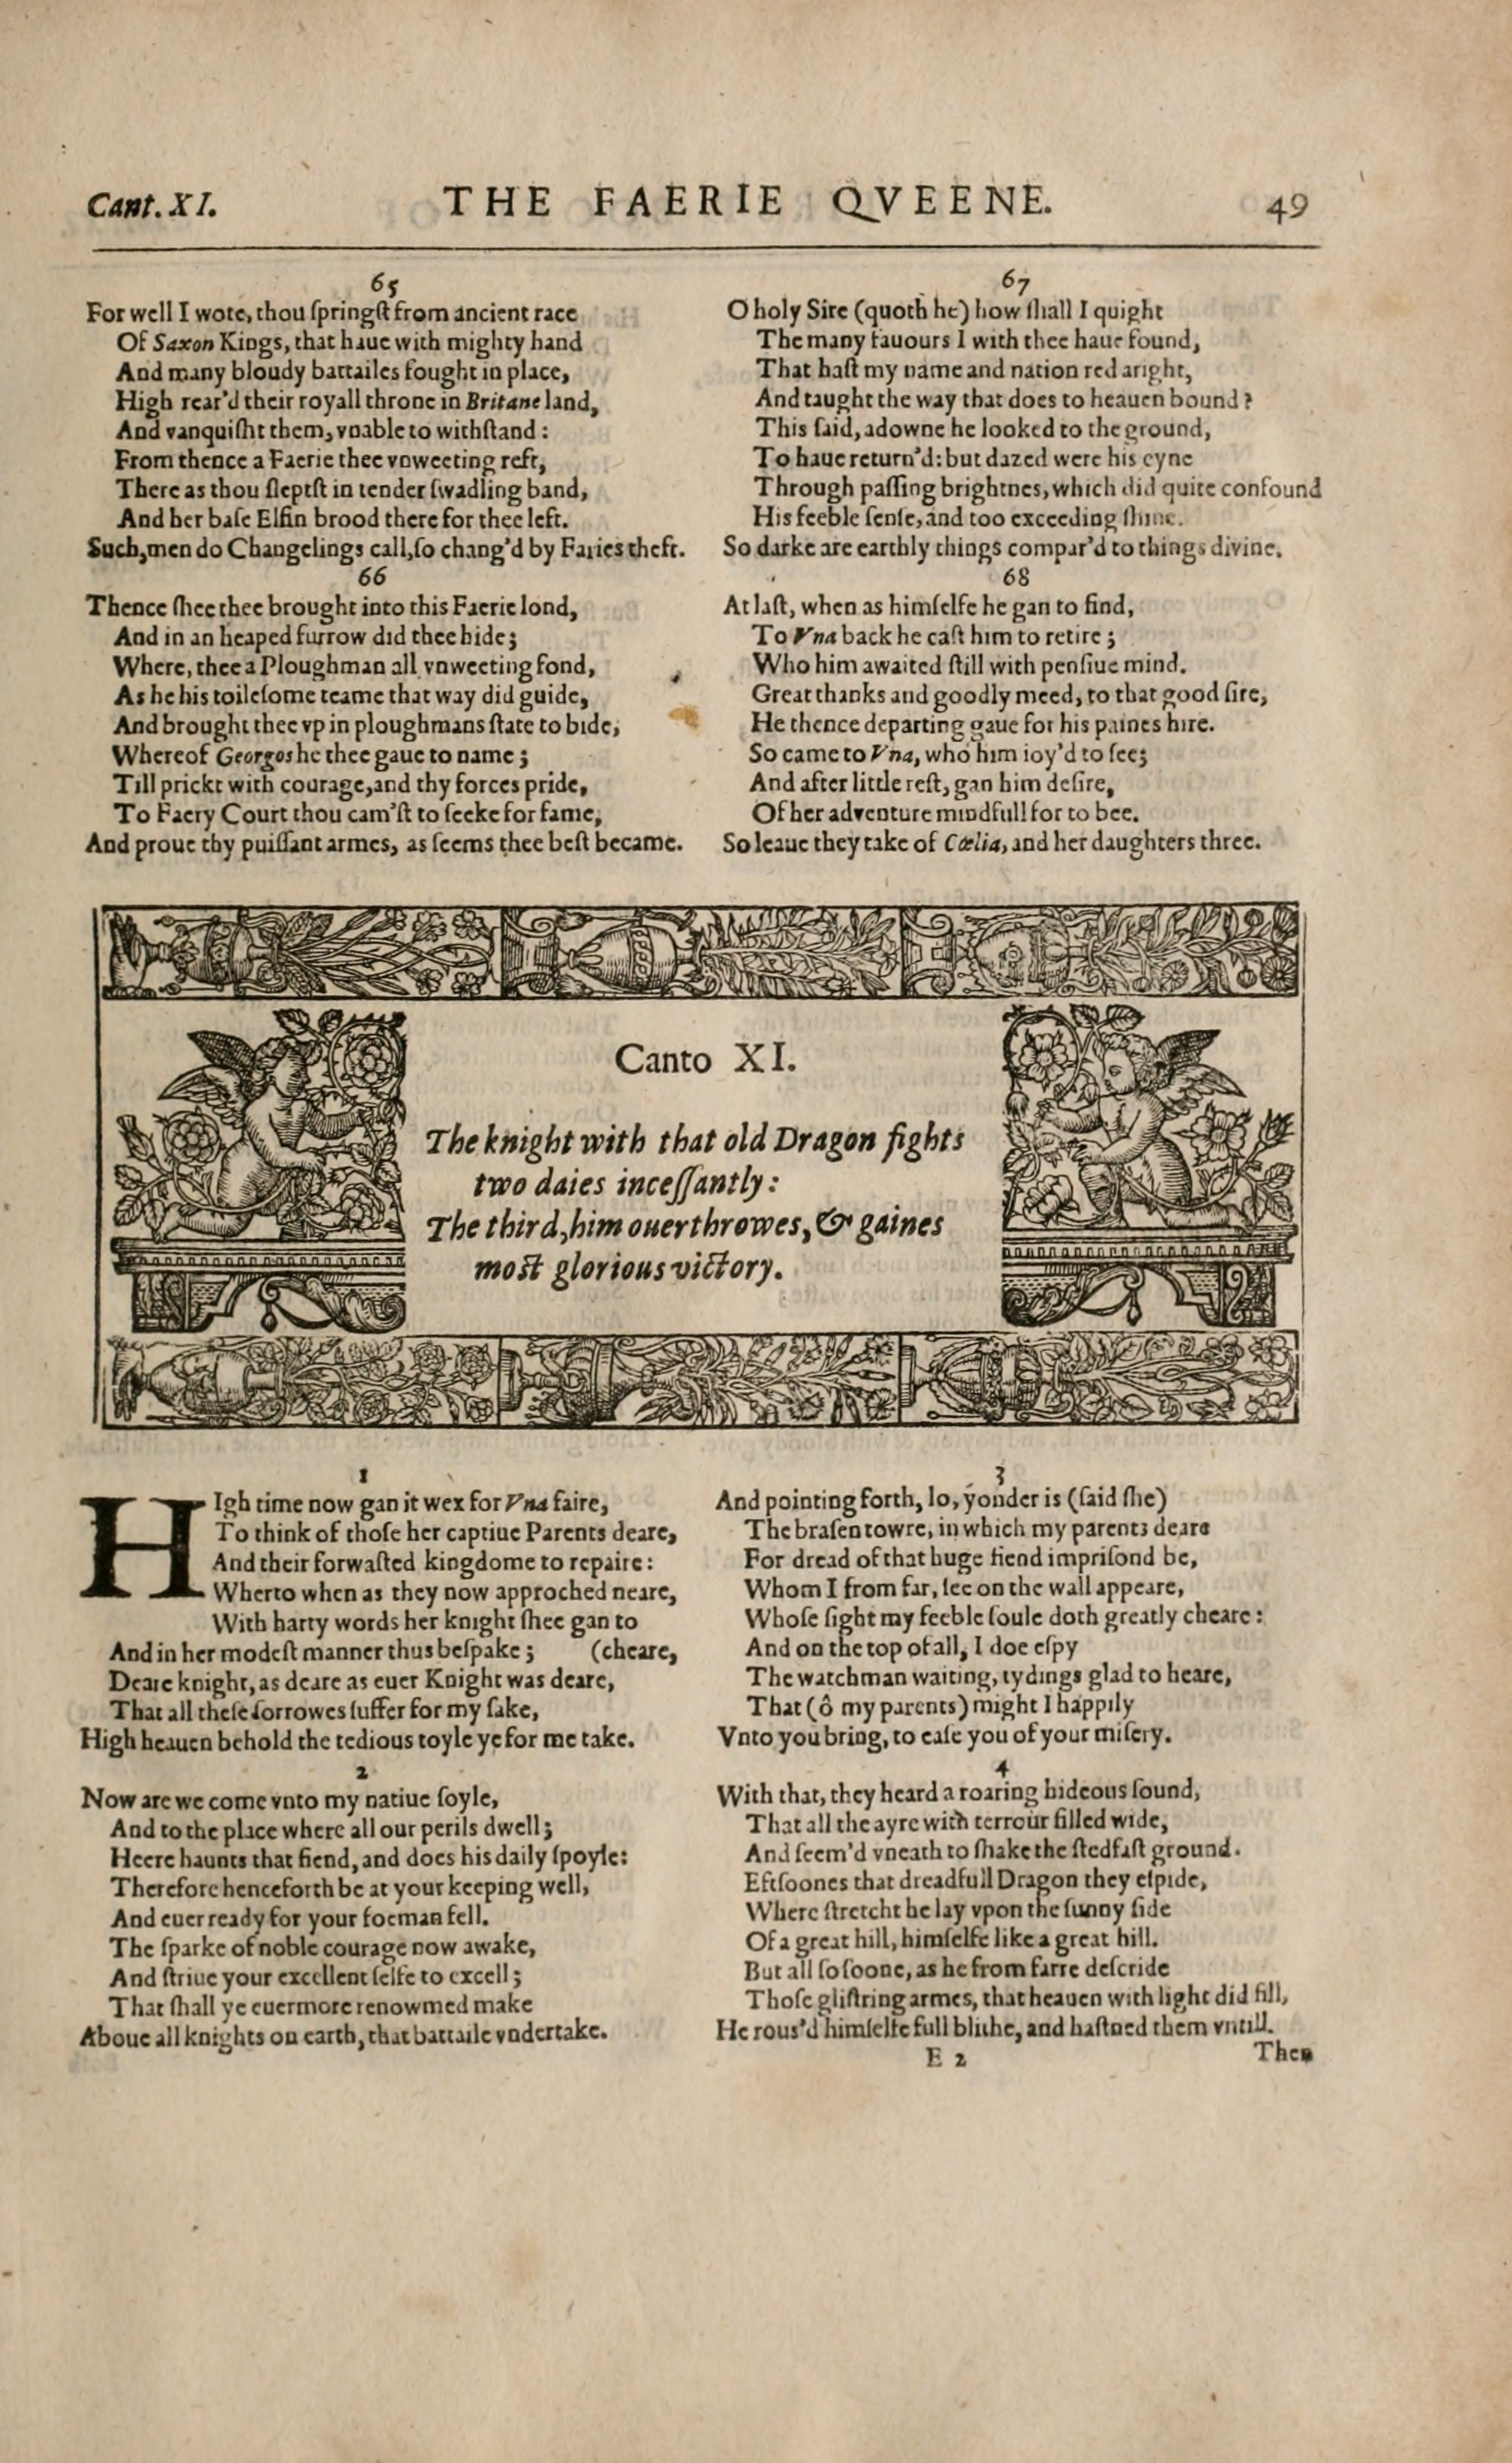 Cant. XI. THE FAERIE QVEENE. 49
65
For well I wote, thou ſpringſt from ancient race
Of Saxon Kings, that haue with mighty hand
And many bloudy battailes fought in place,
High rear'd their royall throne in Britane land,
And vanquiſht them, vnable to withſtand :
From thence a Faerie thee vnweeting reft,
There as thou ſleptſt in tender ſwadling band,
And her baſe Elfin brood there for thee left.
Such, men do Changelings call, ſo chang'd by Faries theft.
66
Thence ſhee thee brought into this Faerie lond,
And in an heaped furrow did thee hide ;
Where, thee a Ploughman all vnweeting fond,
As he his toileſome teame that way did guide,
And brought thee vp in ploughmans ſtate to bide,
Whereof Georgos he thee gaue to name ;
Till prickt with courage, and thy forces pride,
To Faery Court thou cam'ſt to ſeeke for fame,
And proue thy puiſſant armes, as ſeems thee beſt became.
67
O holy Sire (quoth he) how ſhall I quight
The many fauours I with thee haue found,
That haſt my name and nation red aright,
And taught the way that does to heauen bound ?
This ſaid, adowne he looked to the ground,
To haue return'd : but dazed were his eyne
Through paſſing brightnes, which did quite confound
His feeble ſenſe, and too exceeding ſhine.
So darke are earthly things compar'd to things divine.
68
At laſt, when as himſelfe he gan to find,
To Vna back he caſt him to retire ;
Who him awaited ſtill with penſiue mind.
Great thanks and goodly meed, to that good ſire,
He thence departing gaue for his paines hire.
So came to Vna, who him ioy'd to ſee;
And after little reſt, gan him deſire,
Of her adventure mindfull for to bee.
So leaue they take of Cœlia, and her daughters three.
Canto XI.
The knight with that old Dragon fights
two daies inceſſantly :
The third, him ouerthrowes, & gaines
moſt glorious victory.
1
HIgh time now gan it wex for Vna faire,
To think of thoſe her captiue Parents deare,
And their forwaſted kingdome to repaire :
Wherto when as they now approched neare,
With harty words her knight ſhee gan to
And in her modeſt manner thus beſpake ; (cheare,
Deare knight, as deare as euer Knight was deare,
That all theſe ſorrowes ſuffer for my ſake,
High heauen behold the tedious toyle ye for me take.
2
Now are we come vnto my natiue ſoyle,
And to the place where all our perils dwell ;
Heere haunts that fiend, and does his daily ſpoyle :
Therefore henceforth be at your keeping well,
And euer ready for your foeman fell.
The ſparke of noble courage now awake,
And ſtriue your excellent ſelfe to excell ;
That ſhall ye euermore renowmed make
Aboue all knights on earth, that battaile vndertake.
3
And pointing forth, lo, yonder is (ſaid ſhe)
The braſen towre, in which my parents deare
For dread of that huge fiend impriſond be,
Whom I from far, ſee on the wall appeare,
Whoſe ſight my feeble ſoule doth greatly cheare :
And on the top of all, I doe eſpy
The watchman waiting, tydings glad to heare,
That (ô my parents) might I happily
Vnto you bring, to eaſe you of your miſery.
4
With that, they heard a roaring hideous ſound,
That all the ayre with terrour filled wide,
And ſeem'd vneath to ſhake the ſtedfaſt ground.
Eftſoones that dreadfull Dragon they eſpide,
Where ſtretcht he lay vpon the ſunny ſide
Of a great hill, himſelfe like a great hill.
But all ſo ſoone, as he from farre deſcride
Thoſe gliſtring armes, that heauen with light did fill,
He rous'd himſelfe full blithe, and haſtned them vntill.
E 2 Then